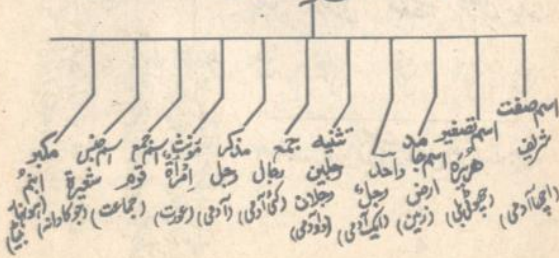 اسم صفت
شریف
(اچھا آدمی)
اسم تصغیر
ھُرَیْرَۃ
(چھوٹی بلی)
اسم جامد
ارض
(زمین)
واحد
رجلٌ
(ایک آدمی)
تثنیہ
رجلین
رجلان
(دو آدمی)
جمع
رجال
(کئی آدمی)
مذکر
رجل
(آدمی)
مؤنث
اِمْرَأۃٌ
(عورت)
اسم جمع
قوم
(جماعت)
اسم جنس
شعیرۃ
(جو کا دانہ)
مکبر